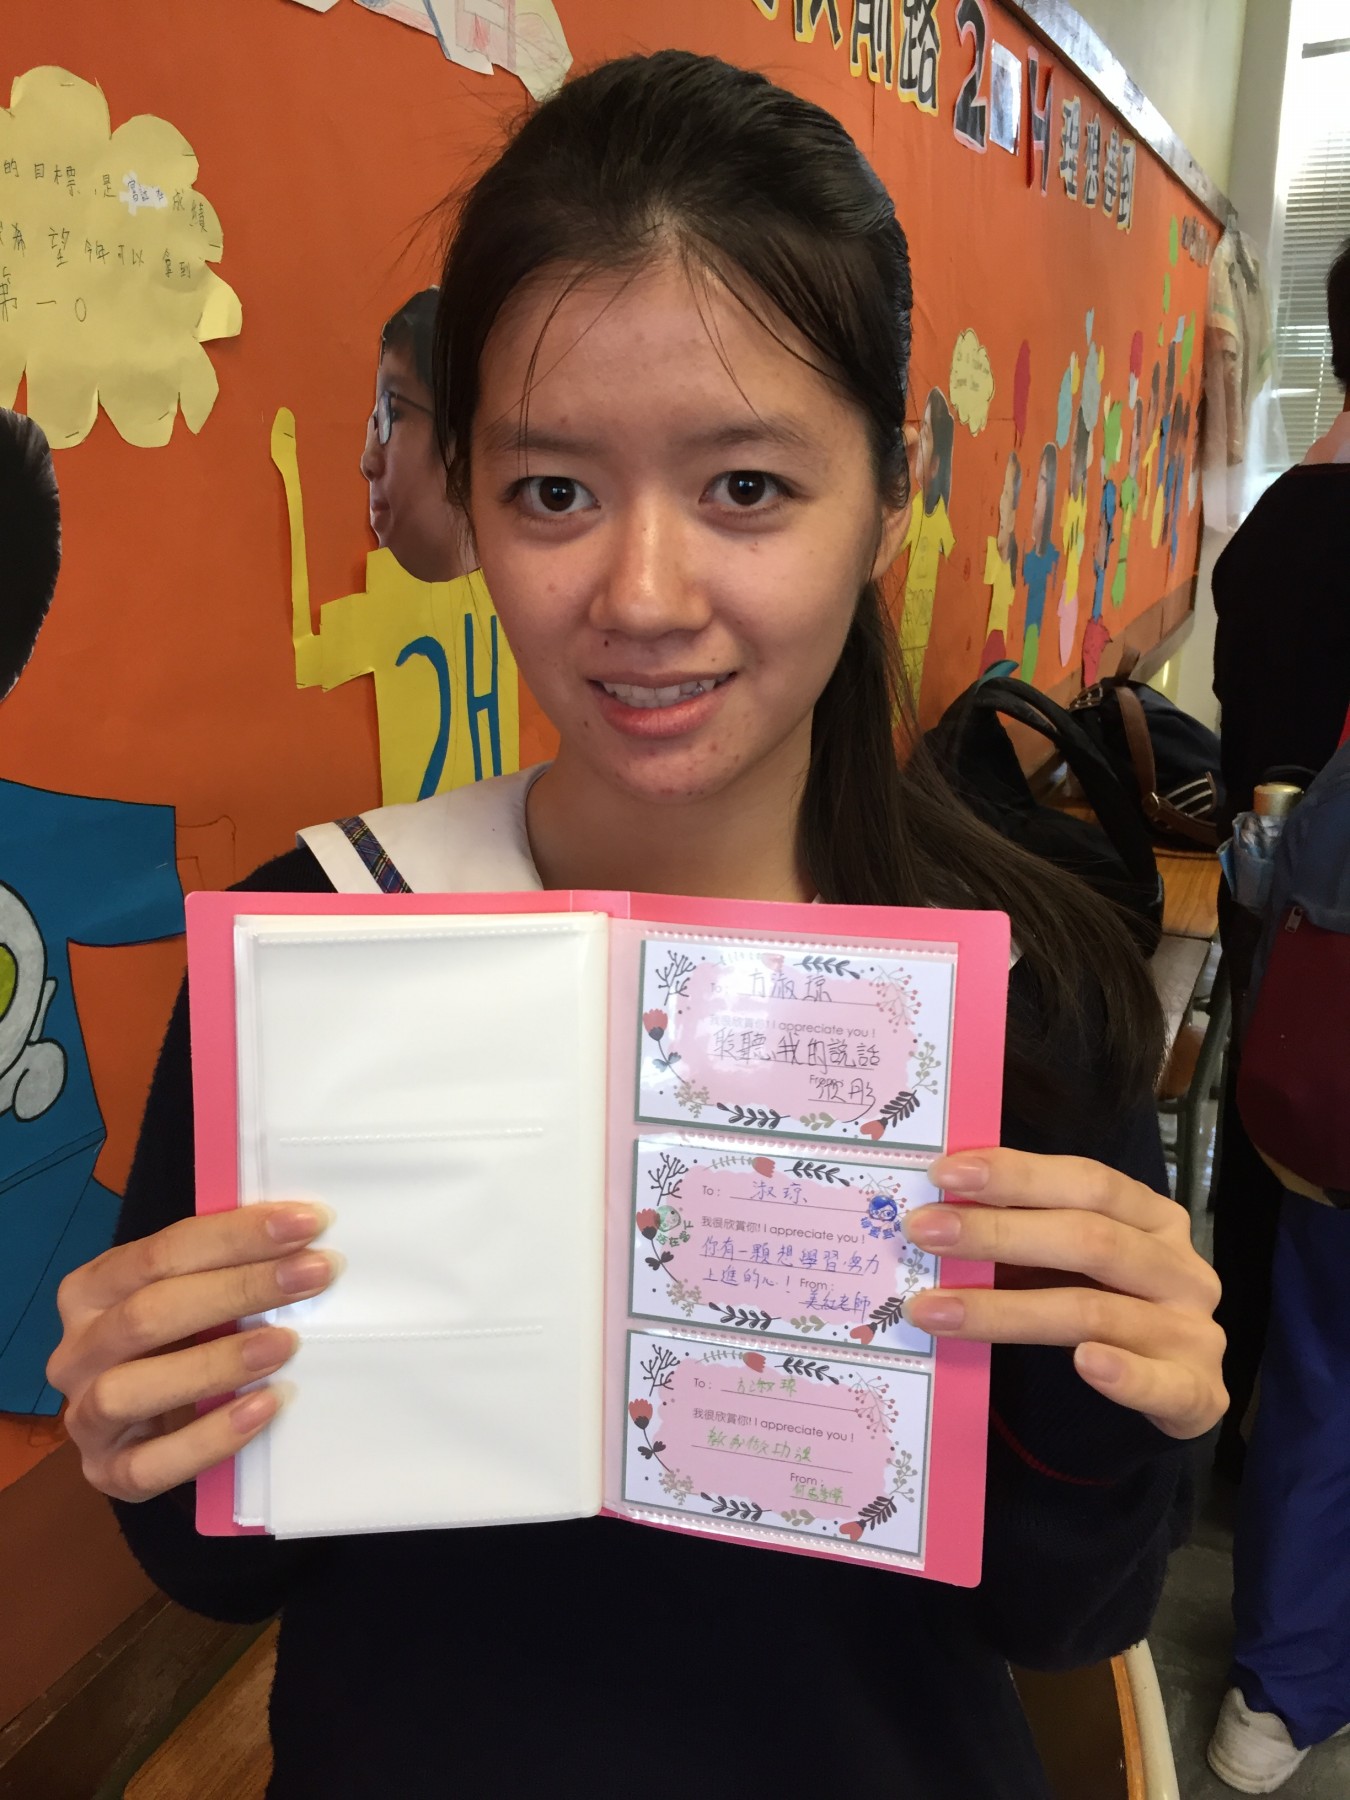 前路 2 H 理想達到
的目標是
成績
希望今年可以拿到
第一。
2H
To: 方淑琼
我很欣賞你! I appreciate you !
聆聽我的說話
From:
To: 淑琼
我很欣賞你! I appreciate you !
你有一顆想學習,努力
上進的心! From:
美紅老師
To: 方淑琼
我很欣賞你! I appreciate you !
教我做功課
From: